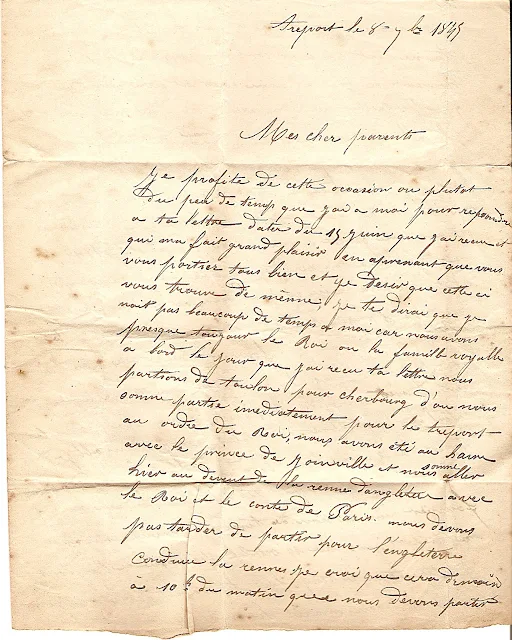 Treport le 8 7bre 1845
Mes cher parents
Je profite de cette occasion ou plutot
du peu de temp que j'ai a moi pour repondre
a ta lettre dater du 15 Juin que j'ai recu et
qui ma fait grand plaisir en aprenant que vous
vous portser tous bien et je desir que cette ci
vous trouve de même, je te dirai que je
nait pas beaucoup de temps a moi car nous avons
presque toujour le Roi ou la famille royalle
a bord le jour que j'ai recu ta lettre nous
partions de toulon pour cherbourg d'ou nous
somme partie imediatement pour le treport
au ordre du Roi, nous avons été au havre
avec le prince de Joinville et nous somme aller
hier au devent de la renne d'angleter avec
le Roi et le conte de Paris. nous devons
pas tarder de partir pour l'engleterre
conduire la rennes, je croi que cera demain
à 10 h du matin que nous devons partir